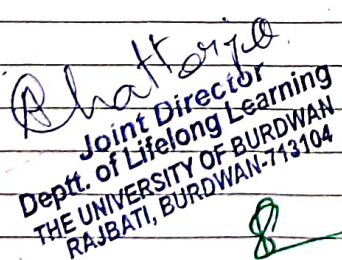 Joint Director
Deptt. of Lifelong Learning
THE UNIVERSITY OF BURDWAN
RAJBATI, BURDWAN-713104